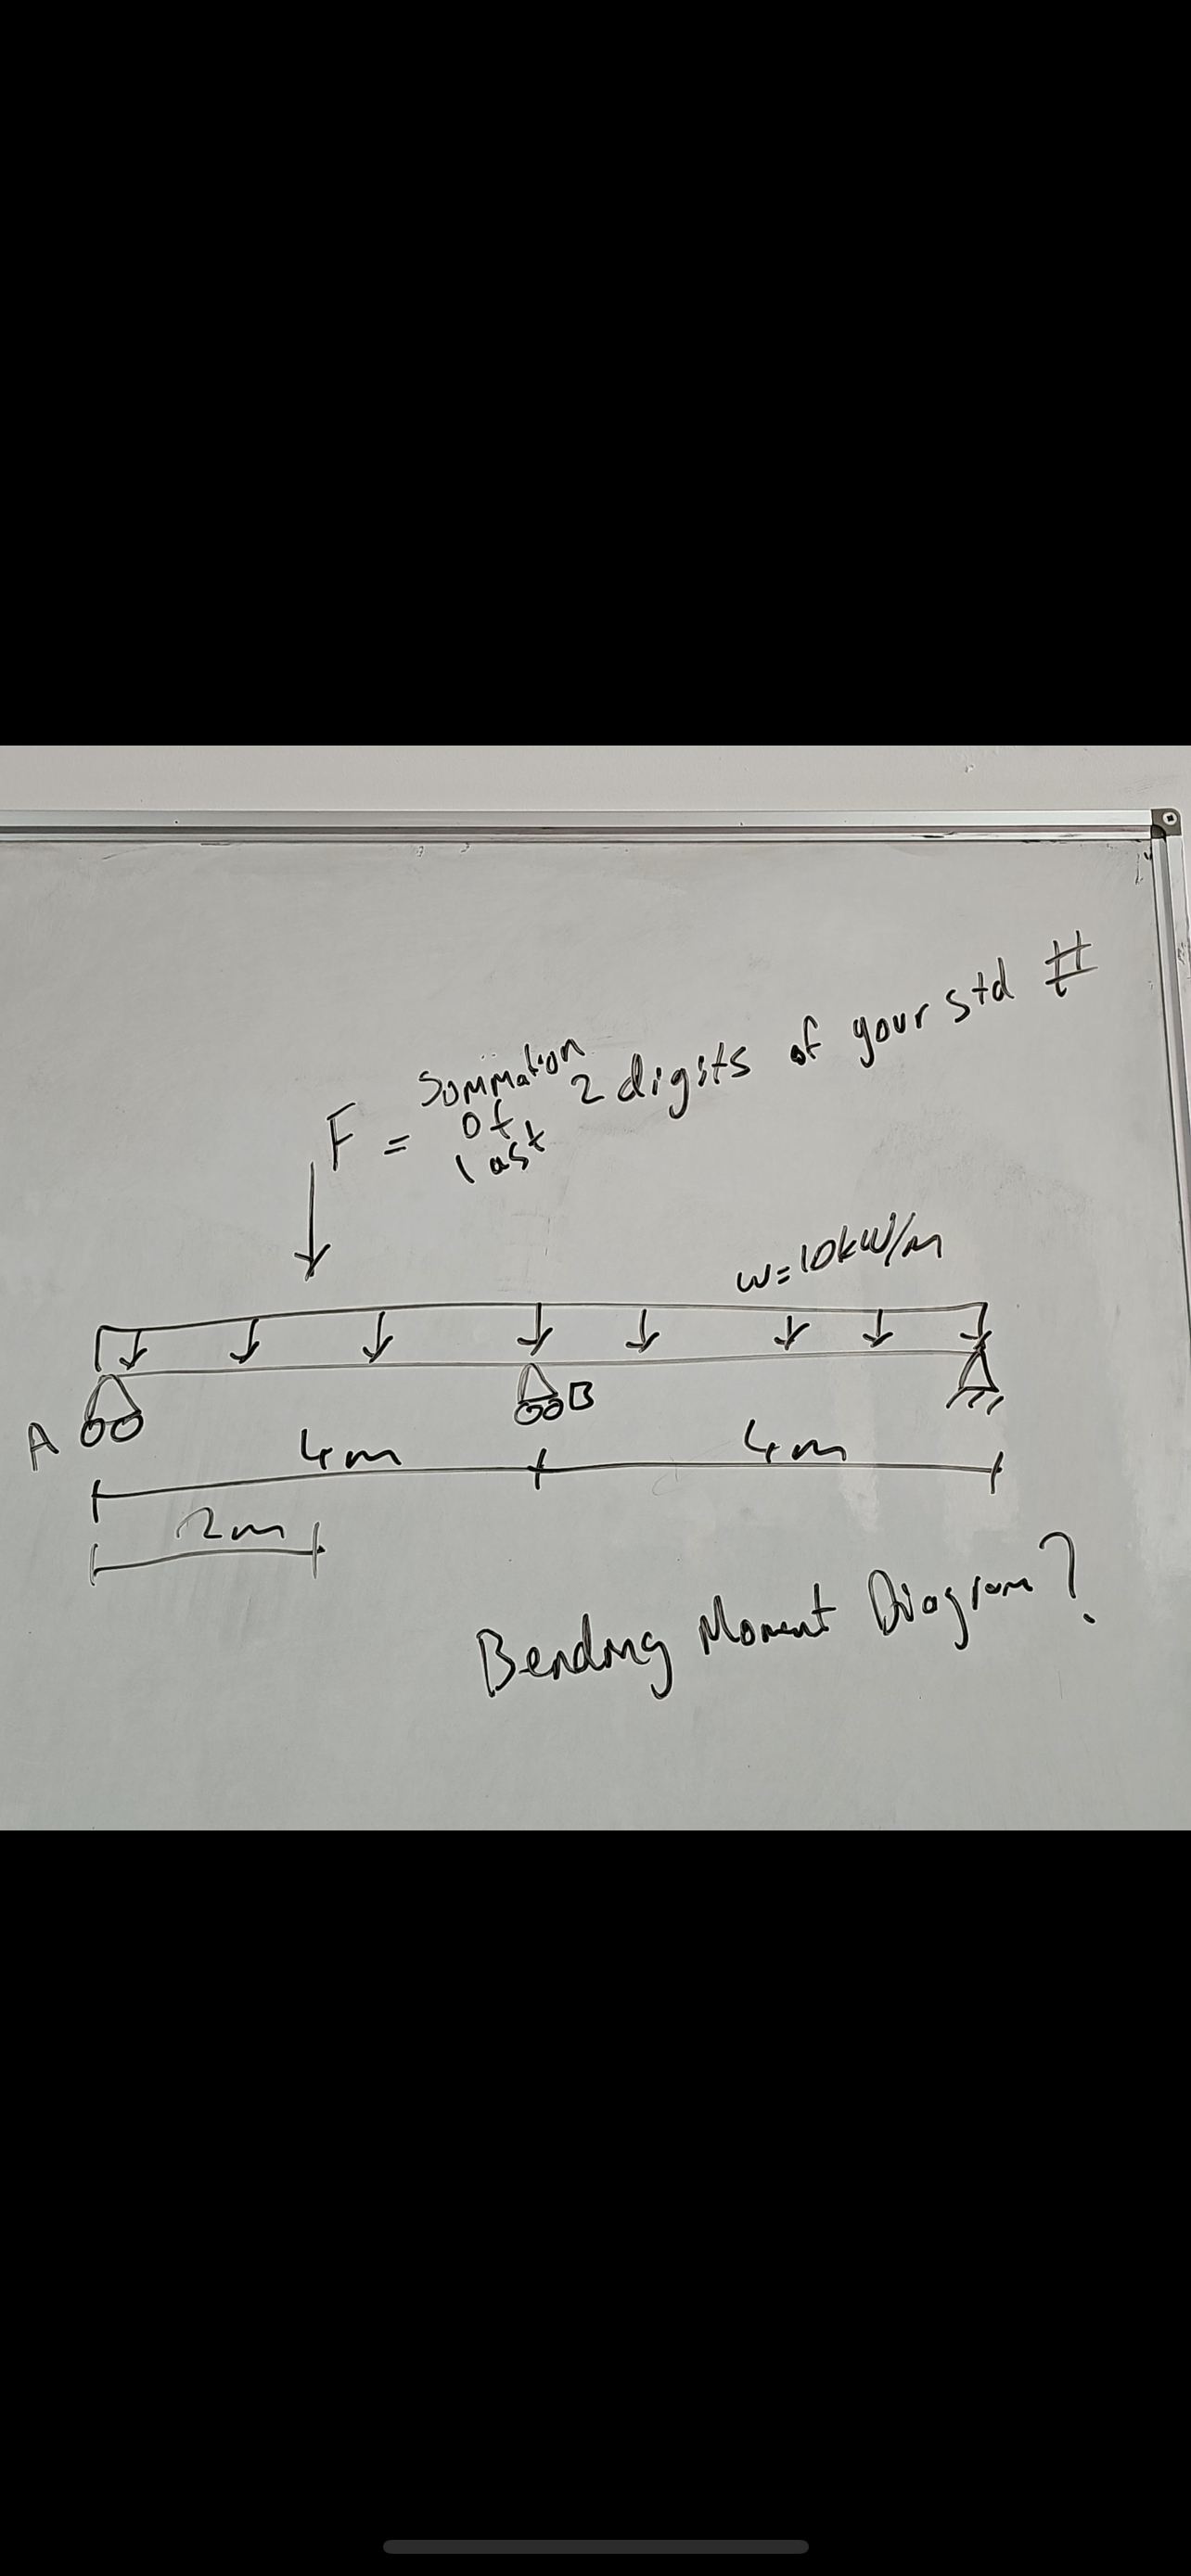 F = Summation of last 2 digits of your std #
w=10kW/m
A
B
4m
4m
2m
Bending Moment Diagram?